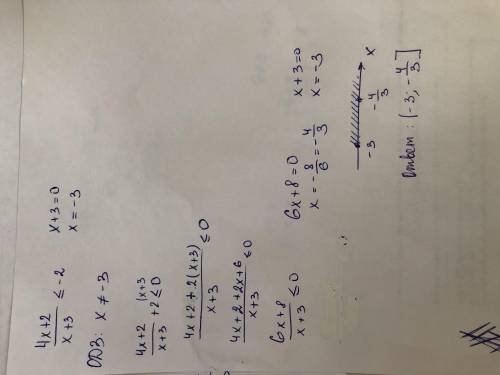 4x+2/x+3 ≤ -2    x+3=0
x=-3
ОДЗ: x ≠ -3
4x+2/x+3 +2 (x+3 ≤ 0
4x+2+2(x+3)/x+3 ≤ 0
4x+2+2x+6/x+3 ≤ 0
6x+8/x+3 ≤ 0
6x+8=0    x+3=0
x=-8/6=-4/3    x=-3
-3    -4/3    x
Ответ: (-3; -4/3]